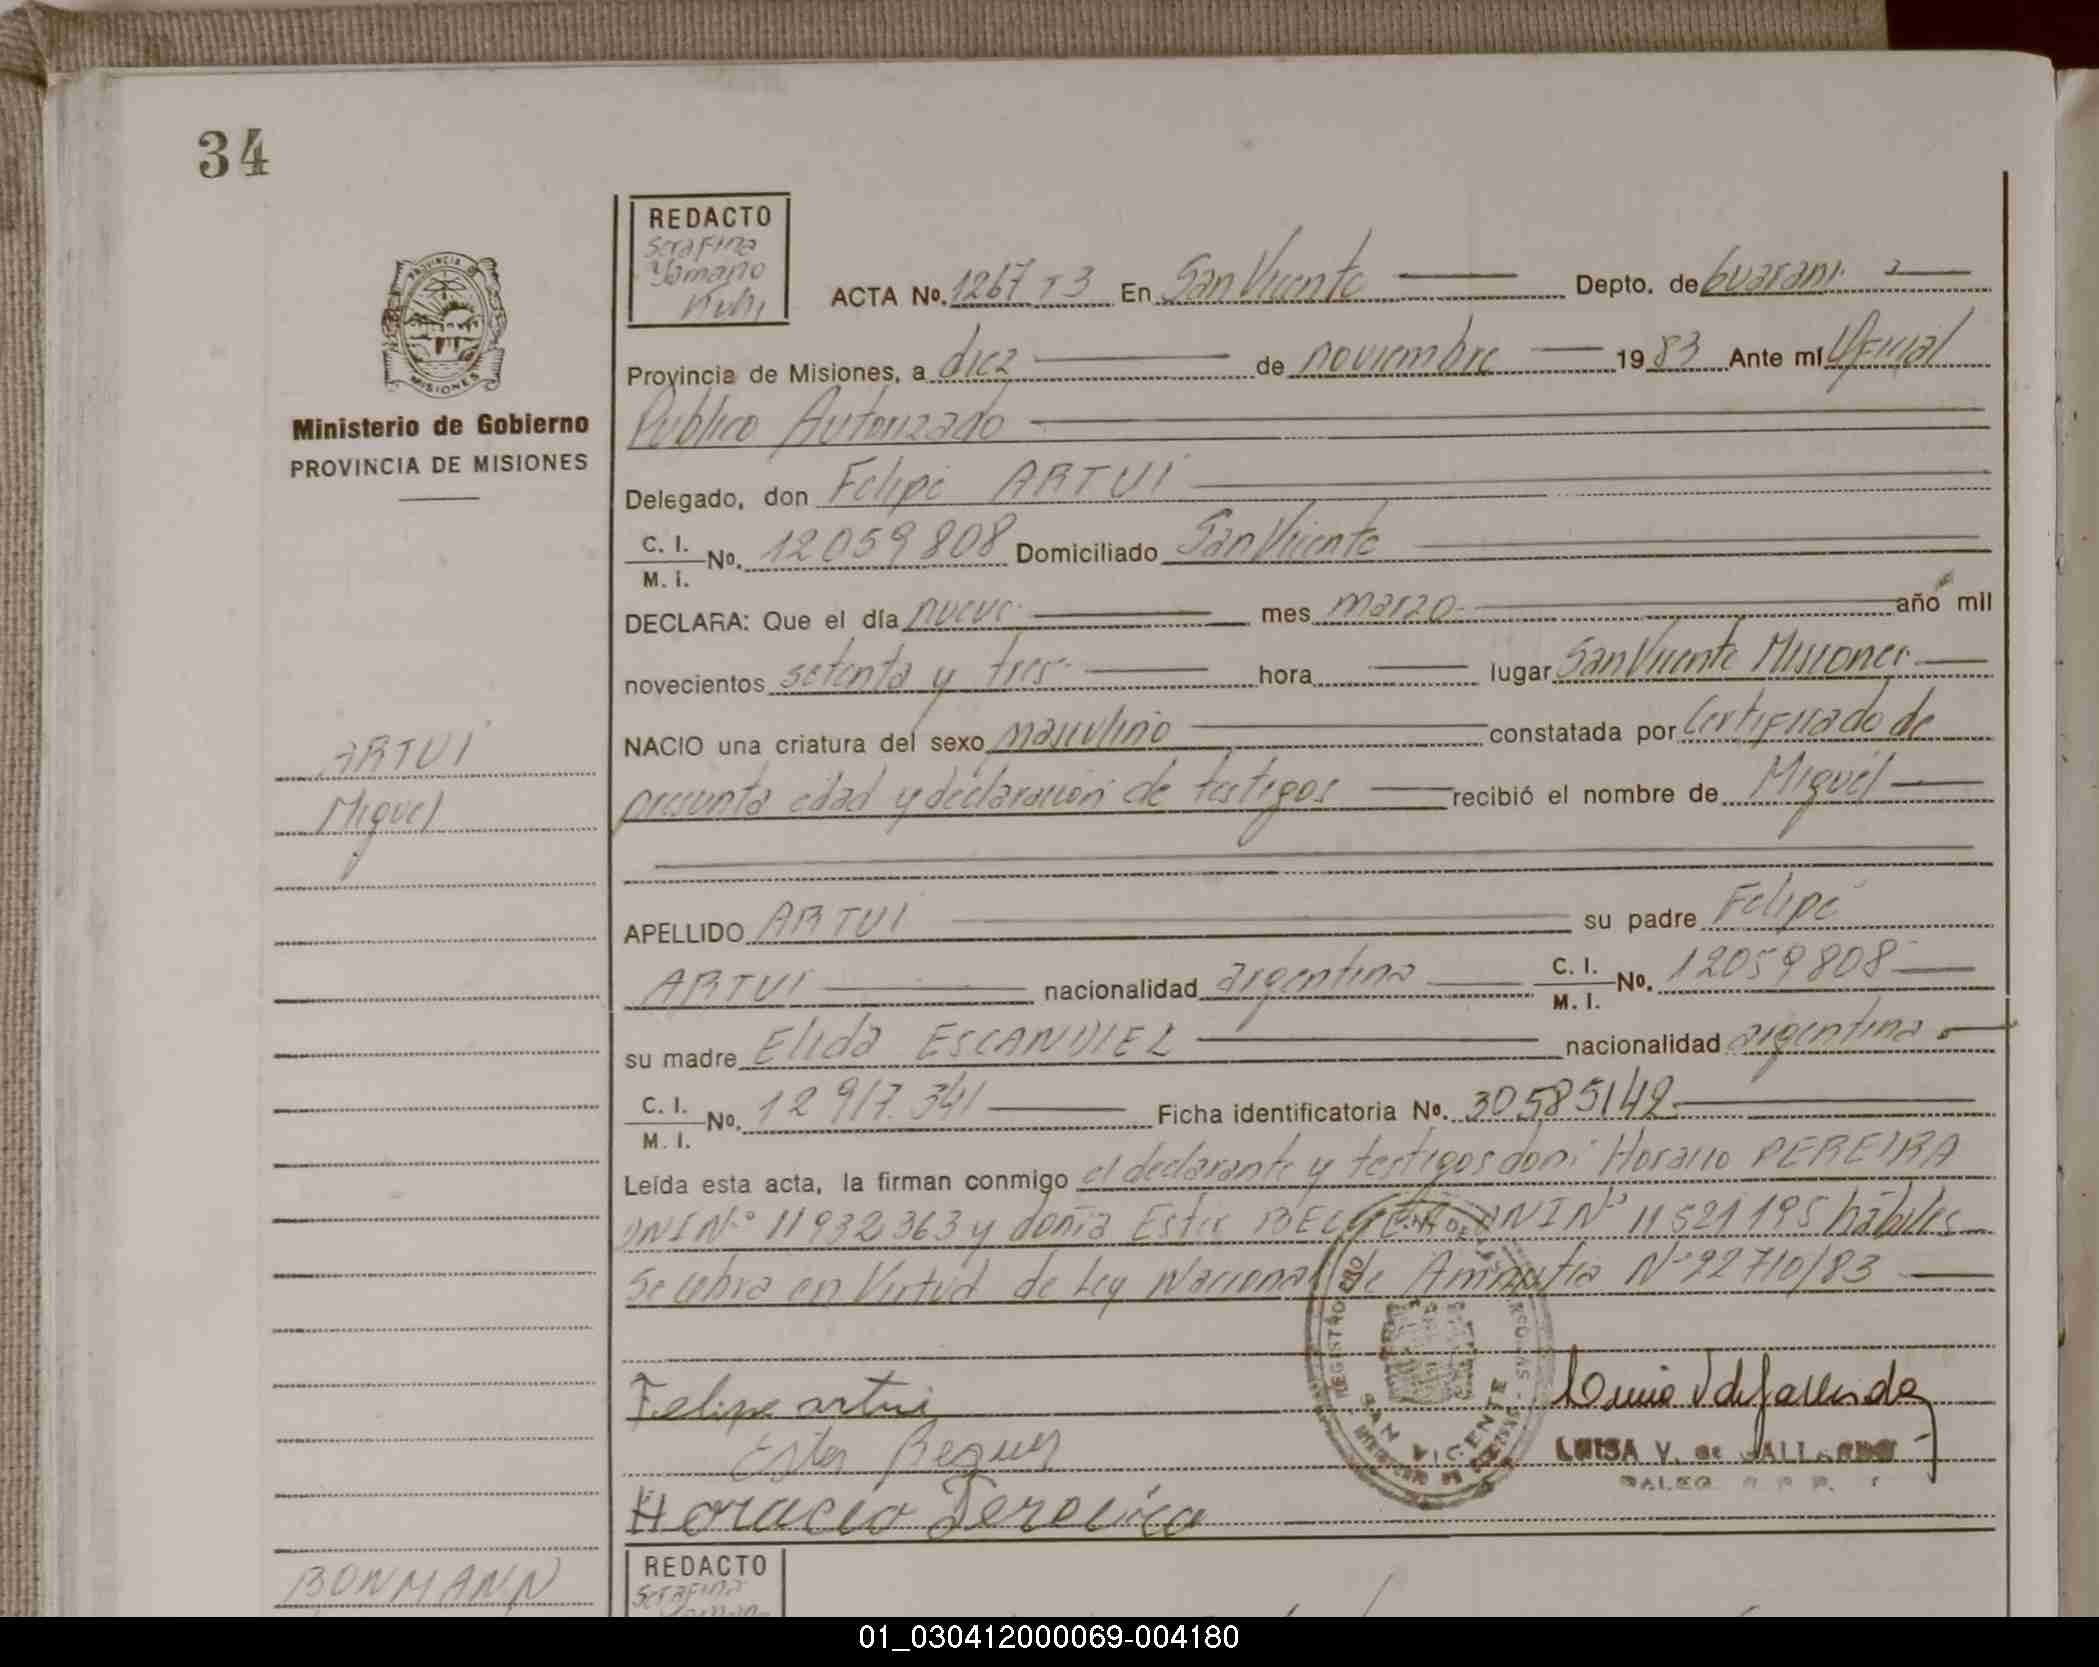 34
REDACTO
Serafina
Yamano
Kuhi
ACTA No. 1267 T3 En San Vicente Depto. de Guarani
Provincia de Misiones, a diez de noviembre 1983 Ante mí Oficial
Publico Autorizado
Ministerio de Gobierno
PROVINCIA DE MISIONES
Delegado, don Felipe ARTUI
C. I.
M. I. No. 12059808 Domiciliado San Vicente
DECLARA: Que el día nueve mes marzo año mil
novecientos setenta y tres hora lugar San Vicente Misiones
NACIO una criatura del sexo masculino constatada por Certificado de
presunta edad y declaración de testigos recibió el nombre de Miguel
ARTUI
Miguel
APELLIDO ARTUI su padre Felipe
ARTUI nacionalidad argentina C. I. M. I. No. 12059808
su madre Elida ESCANDIEL nacionalidad argentina
C. I.
M. I. No. 12 917.341 Ficha identificatoria No. 30585142
Leída esta acta, la firman conmigo el declarante y testigos don: Horacio PEREIRA
DNI Nº 11932363 y doña Ester DNI Nº 11521195 hábiles
Se labra en Virtud de Ley Nacional de Amnistia Nº 22710/83
Felipe artui
Ester
Horacio Pereira
SAN VICENTE
LUISA V. de GALLARDO
REDACTO
Serafina
Yamano
BONMANN
01_030412000069-004180